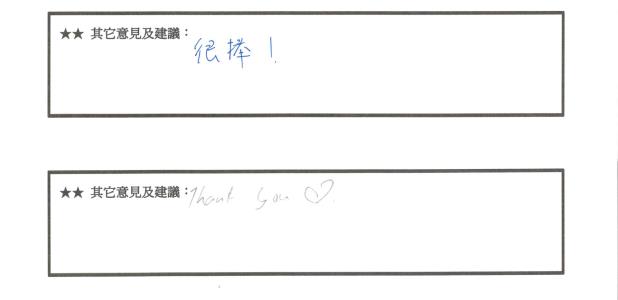 ★★ 其它意見及建議：很捧！
★★ 其它意見及建議：Thank you ♡.